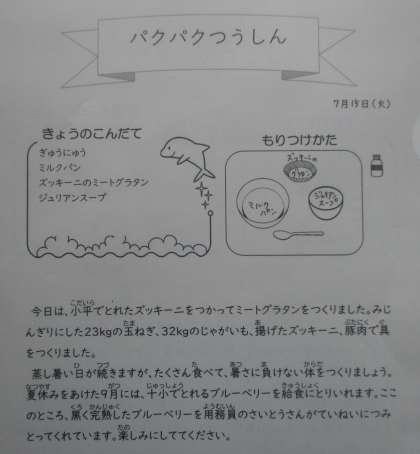 パクパクつうしん
7月15日(火)
きょうのこんだて
ぎゅうにゅう
ミルクパン
ズッキーニのミートグラタン
ジュリアンスープ
もりつけかた
ズッキーニの
グラタン
ミルク
パン
ジュリアン
スープ
今日は、小平でとれたズッキーニをつかってミートグラタンをつくりました。みじ
んぎりにした23kgの玉ねぎ、32kgのじゃがいも、揚げたズッキーニ、豚肉で具
をつくりました。
蒸し暑い日が続きますが、たくさん食べて、暑さに負けない体をつくりましょう。
夏休みをあけた9月には、十小でとれるブルーベリーを給食にとりいれます。ここ
のところ、黒く完熟したブルーベリーを用務員のさいとうさんがていねいにつみ
とってくれています。楽しみにしててください。